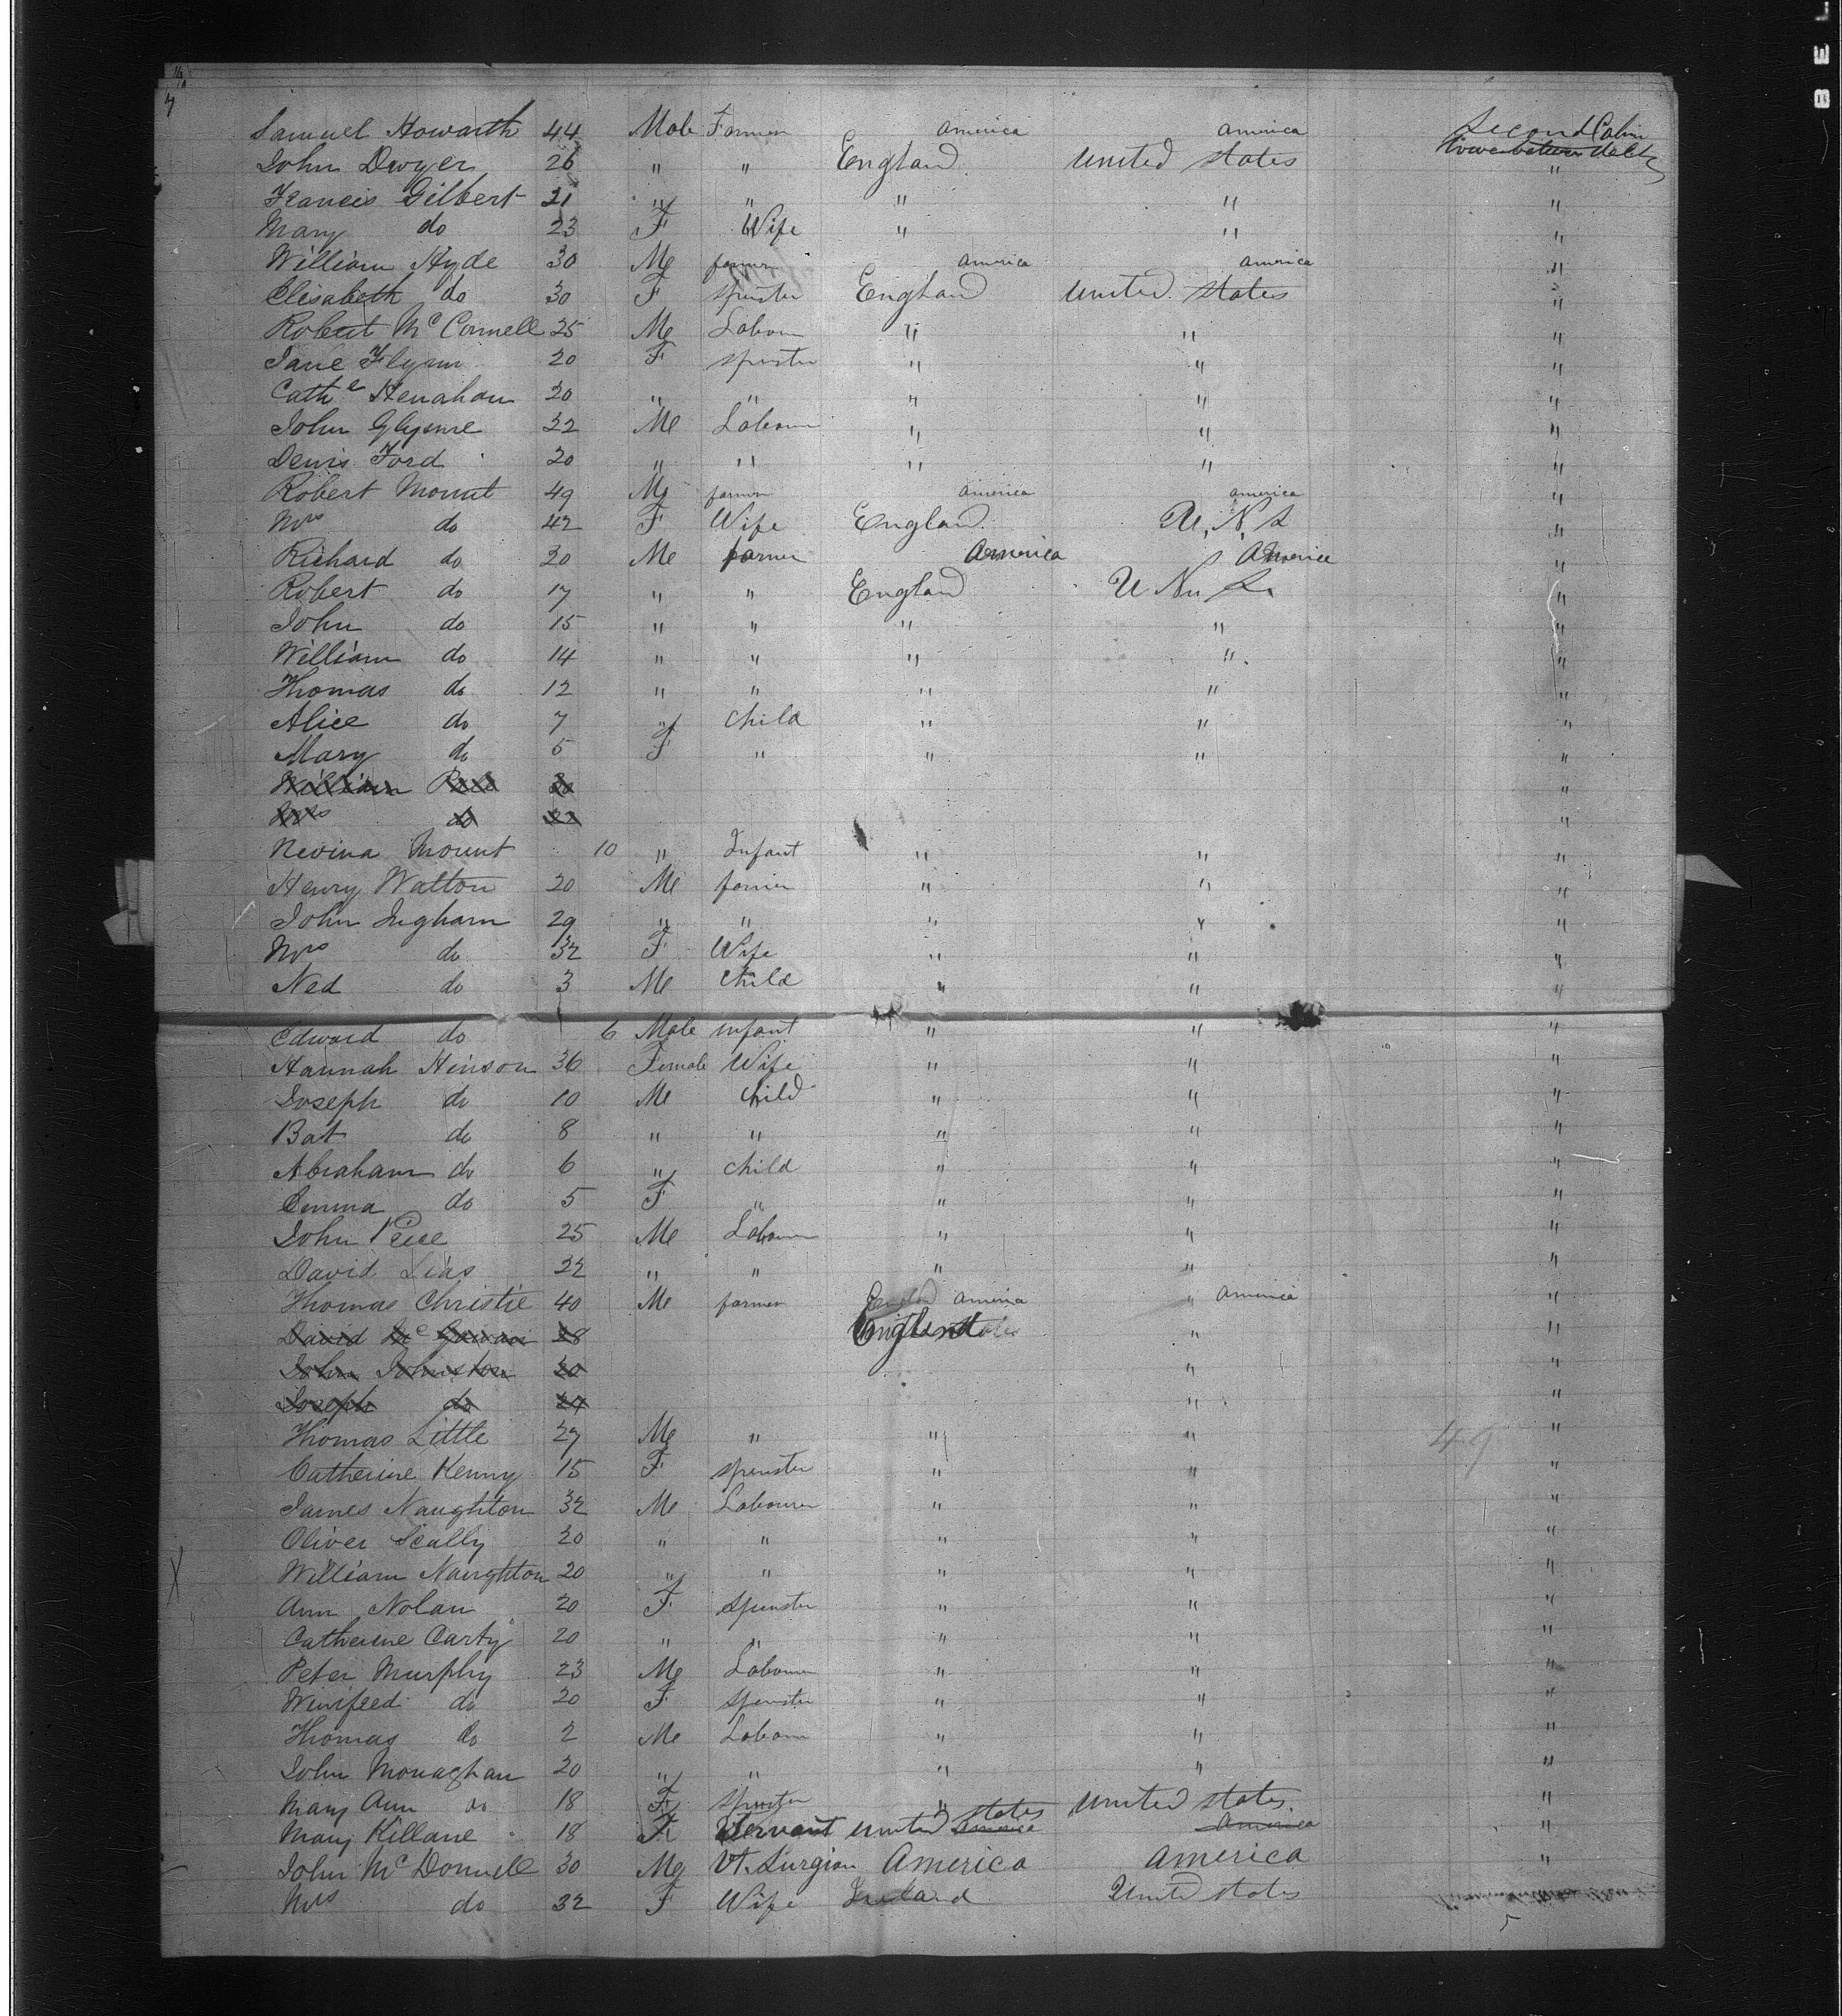 7
Samuel Howarth 44 Male Farmer America America Second Cabin
John Dwyer 26 " " England United States "
Francis Gilbert 21 " " " " "
Mary do 23 F Wife " " "
William Hyde 30 Me farmer America America "
Elisabeth do 30 F Spinster England United States "
Robert McConnell 25 Me Labour " " "
Jane Flynn 20 F Spinster " " "
Cathe Henahan 20 " " " " "
John Glynne 22 Me Labour " " "
Denis Ford 20 " " " " "
Robert Mount 49 Me farmer America America "
Mrs do 42 F Wife England U. N. S "
Richard do 20 Me farmer America America "
Robert do 17 " " England U Nu S. "
John do 15 " " " " "
William do 14 " " " " "
Thomas do 12 " " " " "
Alice do 7 " Child " " "
Mary do 5 F " " " "
William "
Mrs do "
Nevina Mount 10 " Infant " " "
Henry Walton 20 Me farmer " " "
John Ingham 29 " " " " "
Mrs do 32 F Wife " " "
Ned do 3 Me Child " " "
Edward do 6 Male infant " " "
Hannah Hinson 36 Female Wife " " "
Joseph do 10 Me Child " " "
Bat do 8 " " " " "
Abraham do 6 " Child " " "
Emma do 5 F " " " "
John Price 25 Me Labour " " "
David Lias 22 " " " " "
Thomas Christie 40 Me farmer England America " America "
David Mc 28 England " "
John Johnston 20 " "
Joseph do 24 " "
Thomas Little 27 Me " " " 49 "
Catherine Kenny 15 F Spinster " " "
James Naughton 32 Me Labourer " " "
Oliver Scally 20 " " " " "
William Naughton 20 " " " " "
Ann Nolan 20 F Spinster " " "
Catherine Carty 20 " " " " "
Peter Murphy 23 Me Labour " " "
Winifred do 20 F Spinster " " "
Thomas do 2 Me Labour " " "
John Monaghan 20 " " " " "
Mary Ann do 18 F Spinster " United States "
Mary Killane 18 F Servant United States America America "
John McDonnell 30 Me Vt. Surgion America America "
Mrs do 32 F Wife Ireland United States